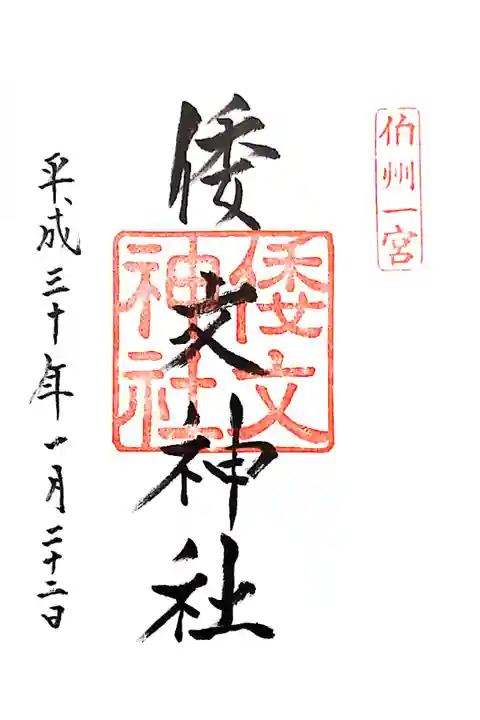 伯州一宮
倭文神社
倭文
神社
平成三十年一月二十二日